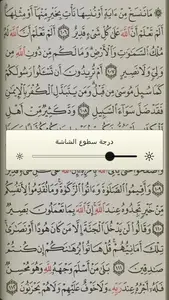 ۞ مَا نَنسَخْ مِنْ ءَايَةٍ أَوْ نُنسِهَا نَأْتِ بِخَيْرٍ مِّنْهَا أَوْ مِثْلِهَا
أَلَمْ تَعْلَمْ أَنَّ ٱللَّهَ عَلَىٰ كُلِّ شَىْءٍ قَدِيرٌ ١٠٦ أَلَمْ تَعْلَمْ أَنَّ ٱللَّهَ لَهُۥ
مُلْكُ ٱلسَّمَٰوَٰتِ وَٱلْأَرْضِ وَمَا لَكُم مِّن دُونِ ٱللَّهِ مِن
وَلِىٍّ وَلَا نَصِيرٍ ١٠٧ أَمْ تُرِيدُونَ أَن تَسْـَٔلُوا۟ رَسُولَكُمْ
كَمَا سُئِلَ مُوسَىٰ مِن قَبْلُ وَمَن يَتَبَدَّلِ ٱلْكُفْرَ بِٱلْإِيمَٰنِ
فَقَدْ ضَلَّ سَوَآءَ ٱلسَّبِيلِ ١٠٨ وَدَّ كَثِيرٌ مِّنْ أَهْلِ
درجة سطوع الشاشة
١٠٩ وَأَقِيمُوا۟ ٱلصَّلَوٰةَ وَءَاتُوا۟ ٱلزَّكَوٰةَ وَمَا تُقَدِّمُوا۟ لِأَنفُسِكُم
مِّنْ خَيْرٍ تَجِدُوهُ عِندَ ٱللَّهِ إِنَّ ٱللَّهَ بِمَا تَعْمَلُونَ بَصِيرٌ
١١٠ وَقَالُوا۟ لَن يَدْخُلَ ٱلْجَنَّةَ إِلَّا مَن كَانَ هُودًا أَوْ نَصَٰرَىٰ
تِلْكَ أَمَانِيُّهُمْ قُلْ هَاتُوا۟ بُرْهَٰنَكُمْ إِن كُنتُمْ
صَٰدِقِينَ ١١١ بَلَىٰ مَنْ أَسْلَمَ وَجْهَهُۥ لِلَّهِ وَهُوَ مُحْسِنٌ
فَلَهُۥٓ أَجْرُهُۥ عِندَ رَبِّهِۦ وَلَا خَوْفٌ عَلَيْهِمْ وَلَا هُمْ يَحْزَنُونَ ١١٢